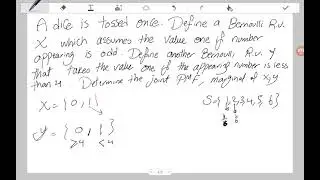 A dice is tossed once. Define a Bernoulli R.V.
X which assumes the value one if number
appearing is odd. Define another Bernoulli R.V. Y
that takes the value one if the appearing number is less
than 4. Determine the joint PMF, marginal of X,Y
X = { 0, 1 }
S = { 1, 2, 3, 4, 5, 6 }
Y = { 0, 1 }
≥4 <4